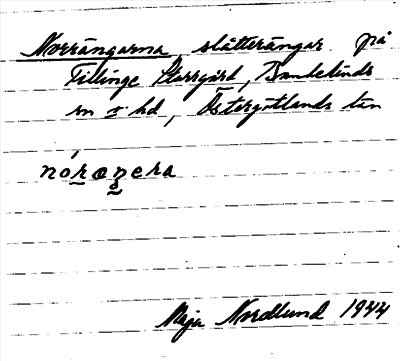 Norrängarna, slåtterängar på
Tillinge Storgård, Bankekinds
sn o hd, Östergötlands län
nórængera
Maja Nordlund 1944